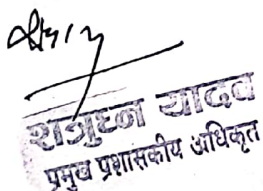 शत्रुघ्न यादव
प्रमुख प्रशासकीय अधिकृत